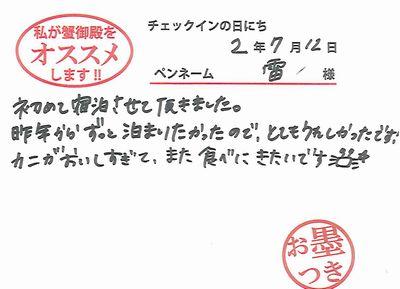 私が蟹御殿を
オススメ
します!!
チェックインの日にち
2年7月12日
ペンネーム 雷 様
初めて宿泊させて頂きました。
昨年からずっと泊まりたかったので、とてもうれしかったです。
カニがおいしすぎて、また食べにきたいです
お墨
つき